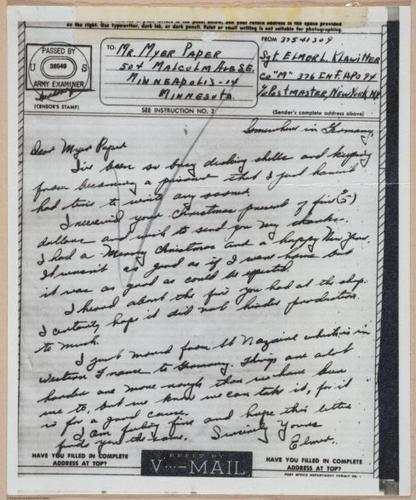 the right. Use typewriter, dark ink, or dark pencil. Faint or small writing is not suitable for photographing.
PASSED BY
U S
38549
ARMY EXAMINER
(CENSOR'S STAMP)
TO: MR. MYER PAPER
504 MALCOLM AVE SE.
MINNEAPOLIS-14
MINNESOTA
SEE INSTRUCTION NO. 2
FROM
Sgt. ELMOR L KLAWITTER
Co "M" 376 INF APO 94
% POSTMASTER, NEW YORK, NY
(Sender's complete address above)
Somewhere in Germany.
Dear Myer Paper
I've been so busy ducking shells and keeping
from becoming a prisoner that I just haven't
had time to write any sooner.
I received your Christmas present of five (5)
dollars and wish to send you my thanks.
I had a Merry Christmas and a happy New Year.
It wasn't as good as if I were home but
it was as good as could be expected.
I heard about the fire you had at the shop.
I certainly hope it did not hinder production
to much.
I just moved from St Nazaire which is in
Western France to Germany. Things are a lot
harder and more rough than we have been
use to, but we know we can take it, for it
is for a good cause.
I am feeling fine and hope this letter
finds you the same.
Sincerely Yours
Elmor.
HAVE YOU FILLED IN COMPLETE
ADDRESS AT TOP?
REPLY BY
V···-MAIL
HAVE YOU FILLED IN COMPLETE
ADDRESS AT TOP?
POST OFFICE DEPARTMENT PERMIT NO. 1